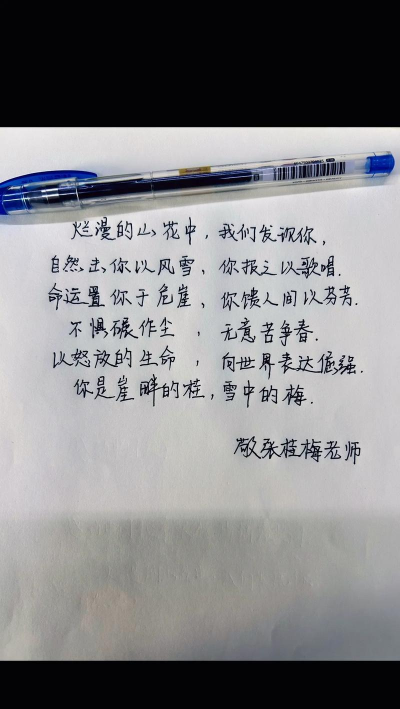 烂漫的山花中，我们发现你，
自然击你以风雪，你报之以歌唱.
命运置你于危崖，你馈人间以芬芳.
不惧碾作尘，无意苦争春.
以怒放的生命，向世界表达倔强.
你是崖畔的桂，雪中的梅.
敬张桂梅老师